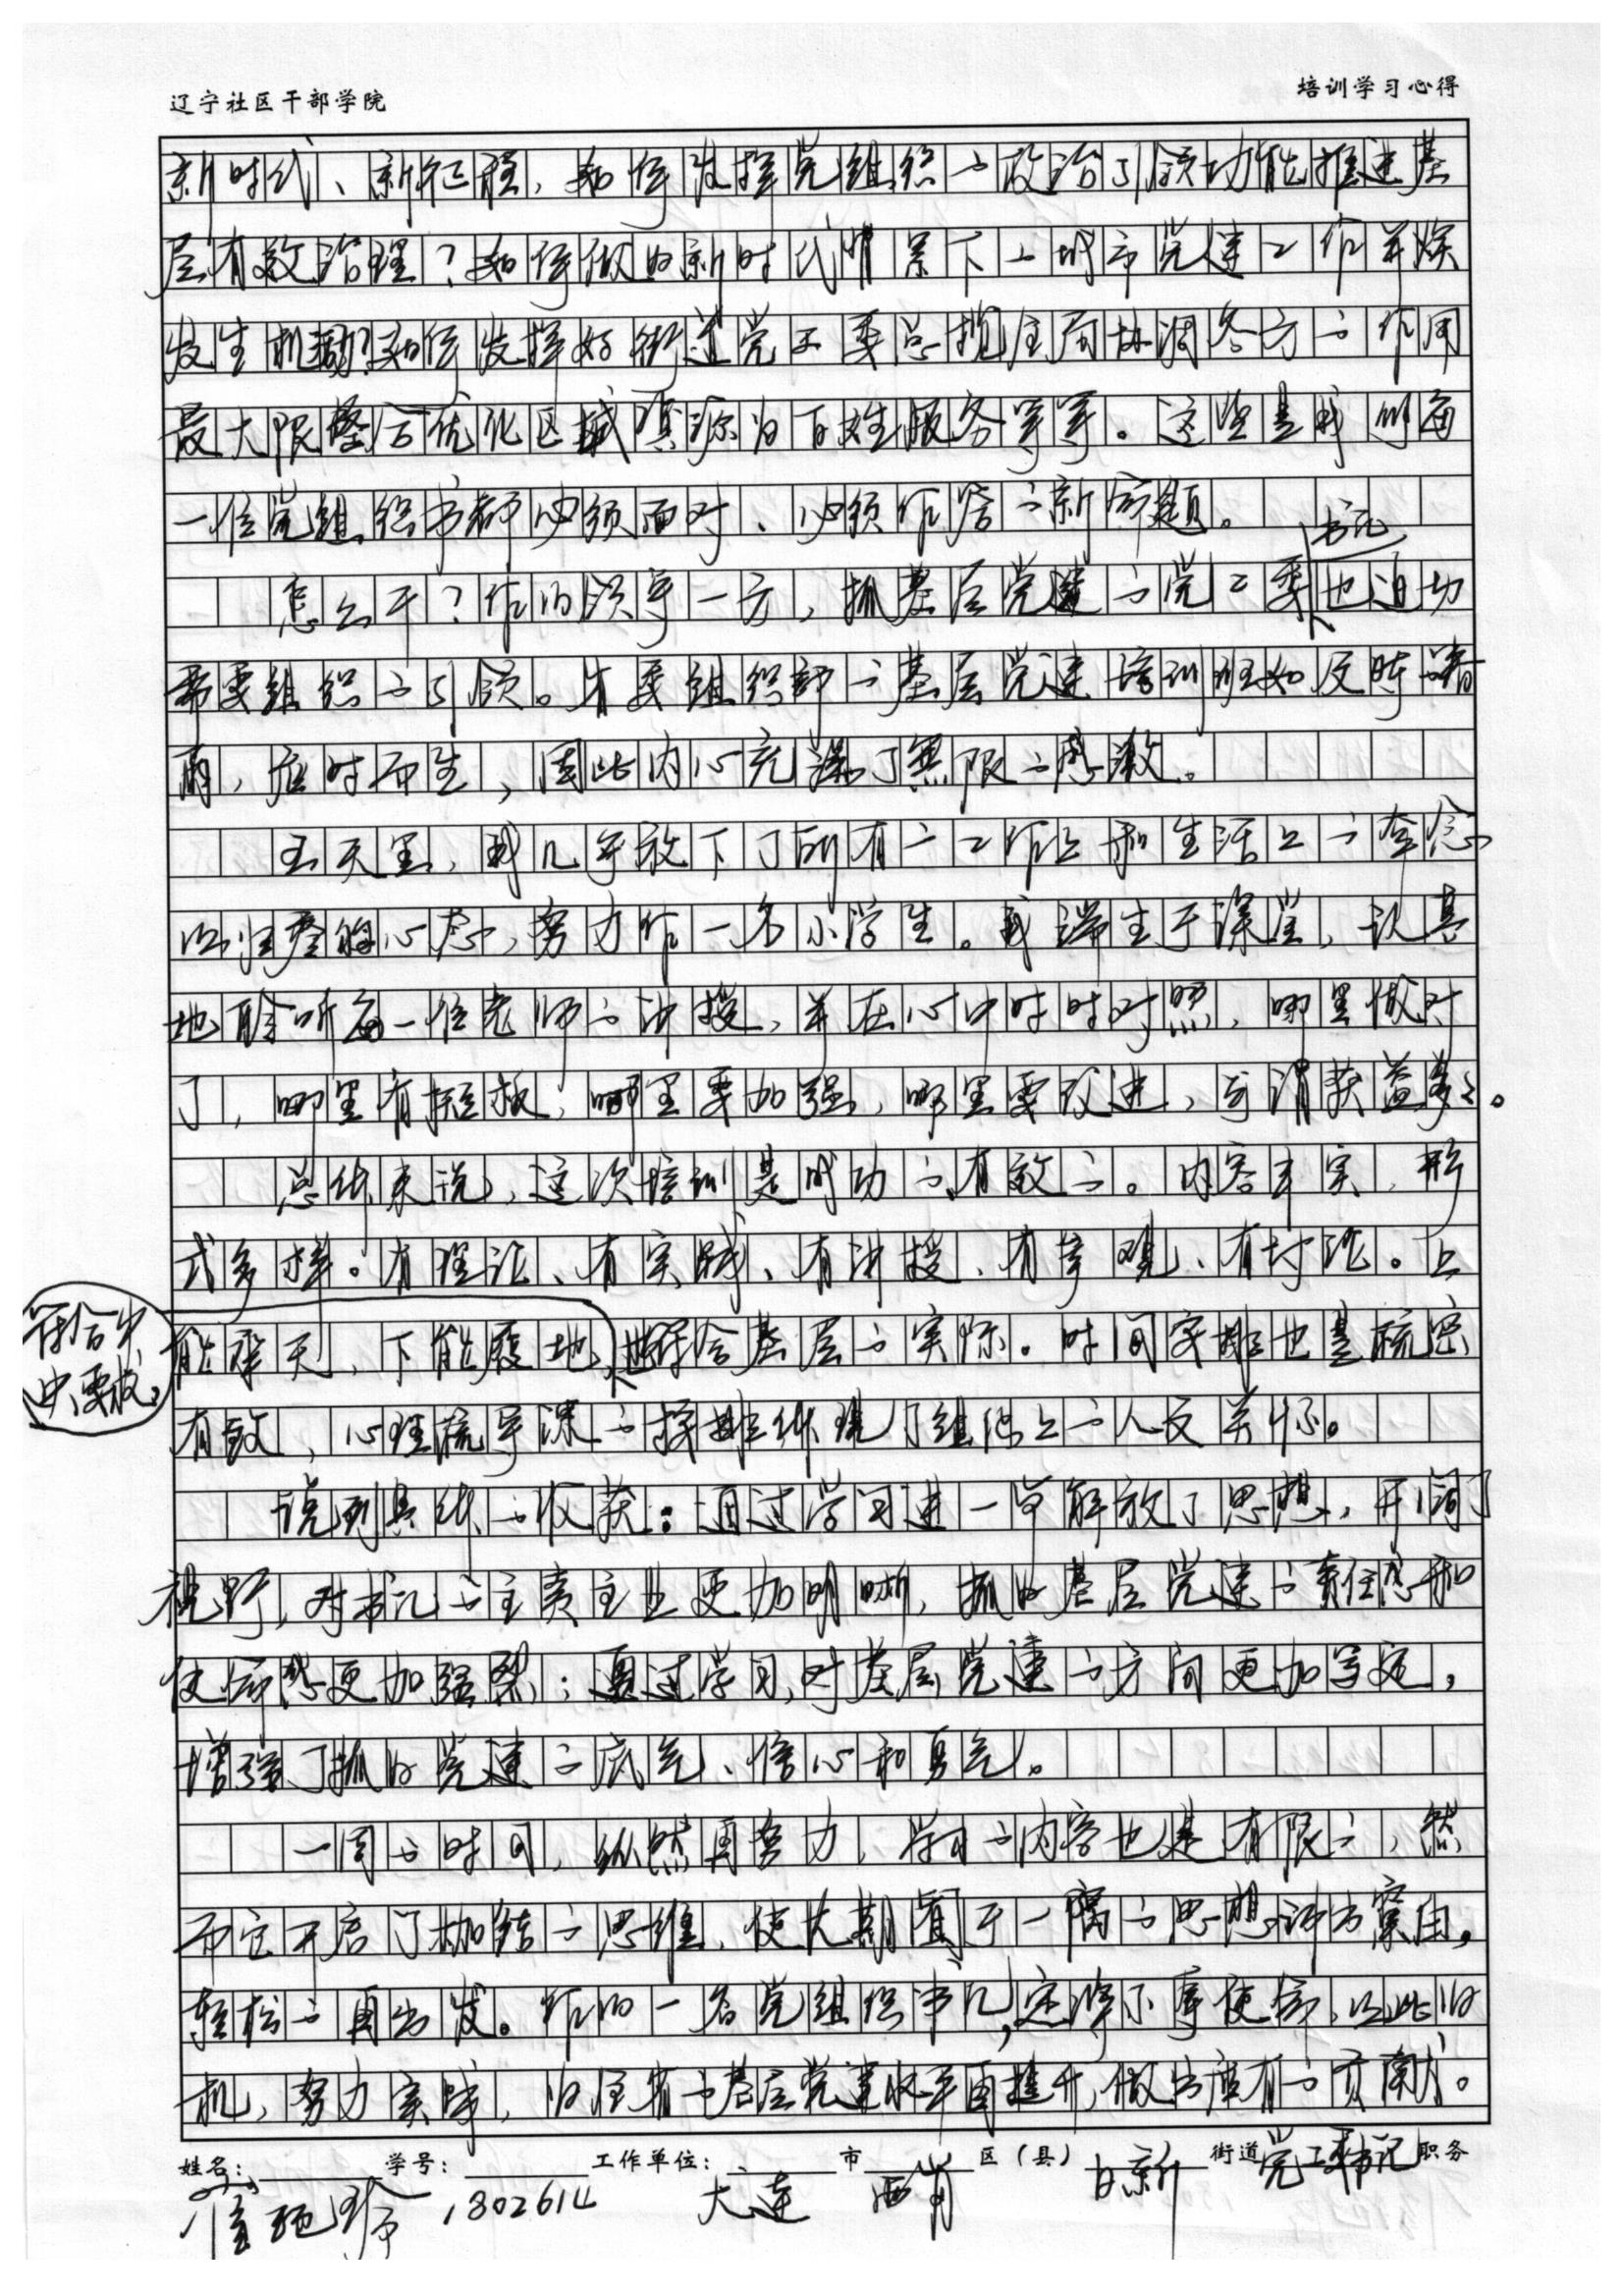 辽宁社区干部学院
培训学习心得
新时代、新征程，如何发挥党组织的政治引领功能推进基
层有效治理？如何做好新时代背景下的城市党建工作并焕
发生机勃勃？如何发挥好街道党工委总揽全局协调各方的作用
最大限整合优化区域资源为百姓服务等等。这些是我们每
一位党组织书都必须面对、必须作答的新命题。
书记
怎么干？作为领导一方，抓基层党建的党工委也迫切
需要组织的引领。省委组织部的基层党建培训班如及时喈
雨，应时而生，因此内心充满了无限的感激。
五天里，我几乎放下了所有的工作上和生活上的牵念
以归零的心态，努力作一名小学生。我端坐于课堂，认真
地聆听每一位老师的讲授，并在心中时时对照，哪里做对
了，哪里有短板，哪里要加强，哪里要改进，可谓获益多多。
总体来说，这次培训是成功的有效的。内容丰实，形
式多样。有理论、有实践、有讲授、有参观、有讨论。上
符合中央要求，
能承天，下能履地，也符合基层的实际。时间安排也是疏密
有致，心理疏导课的安排体现了组织上的人文关怀。
说到具体的收获：通过学习进一步解放了思想，开阔了
视野，对书记的主责主业更加明晰，抓好基层党建的责任感和
使命感更加强烈；通过学习，对基层党建的方向更加笃定，
增强了抓好党建的底气、信心和勇气。
一周的时间，纵然再努力，学习的内容也是有限的，然
而它开启了枷结的思维，使长期置于一隅的思想
轻松的再出发。作为一名党组织书记，定将不辱使命，以此为
机，努力实践，为全省的基层党建水平再提升，做出应有的贡献。
姓名： 学号：1802614 工作单位：大连市 西岗区（县） 日新街道 党工委书记 职务